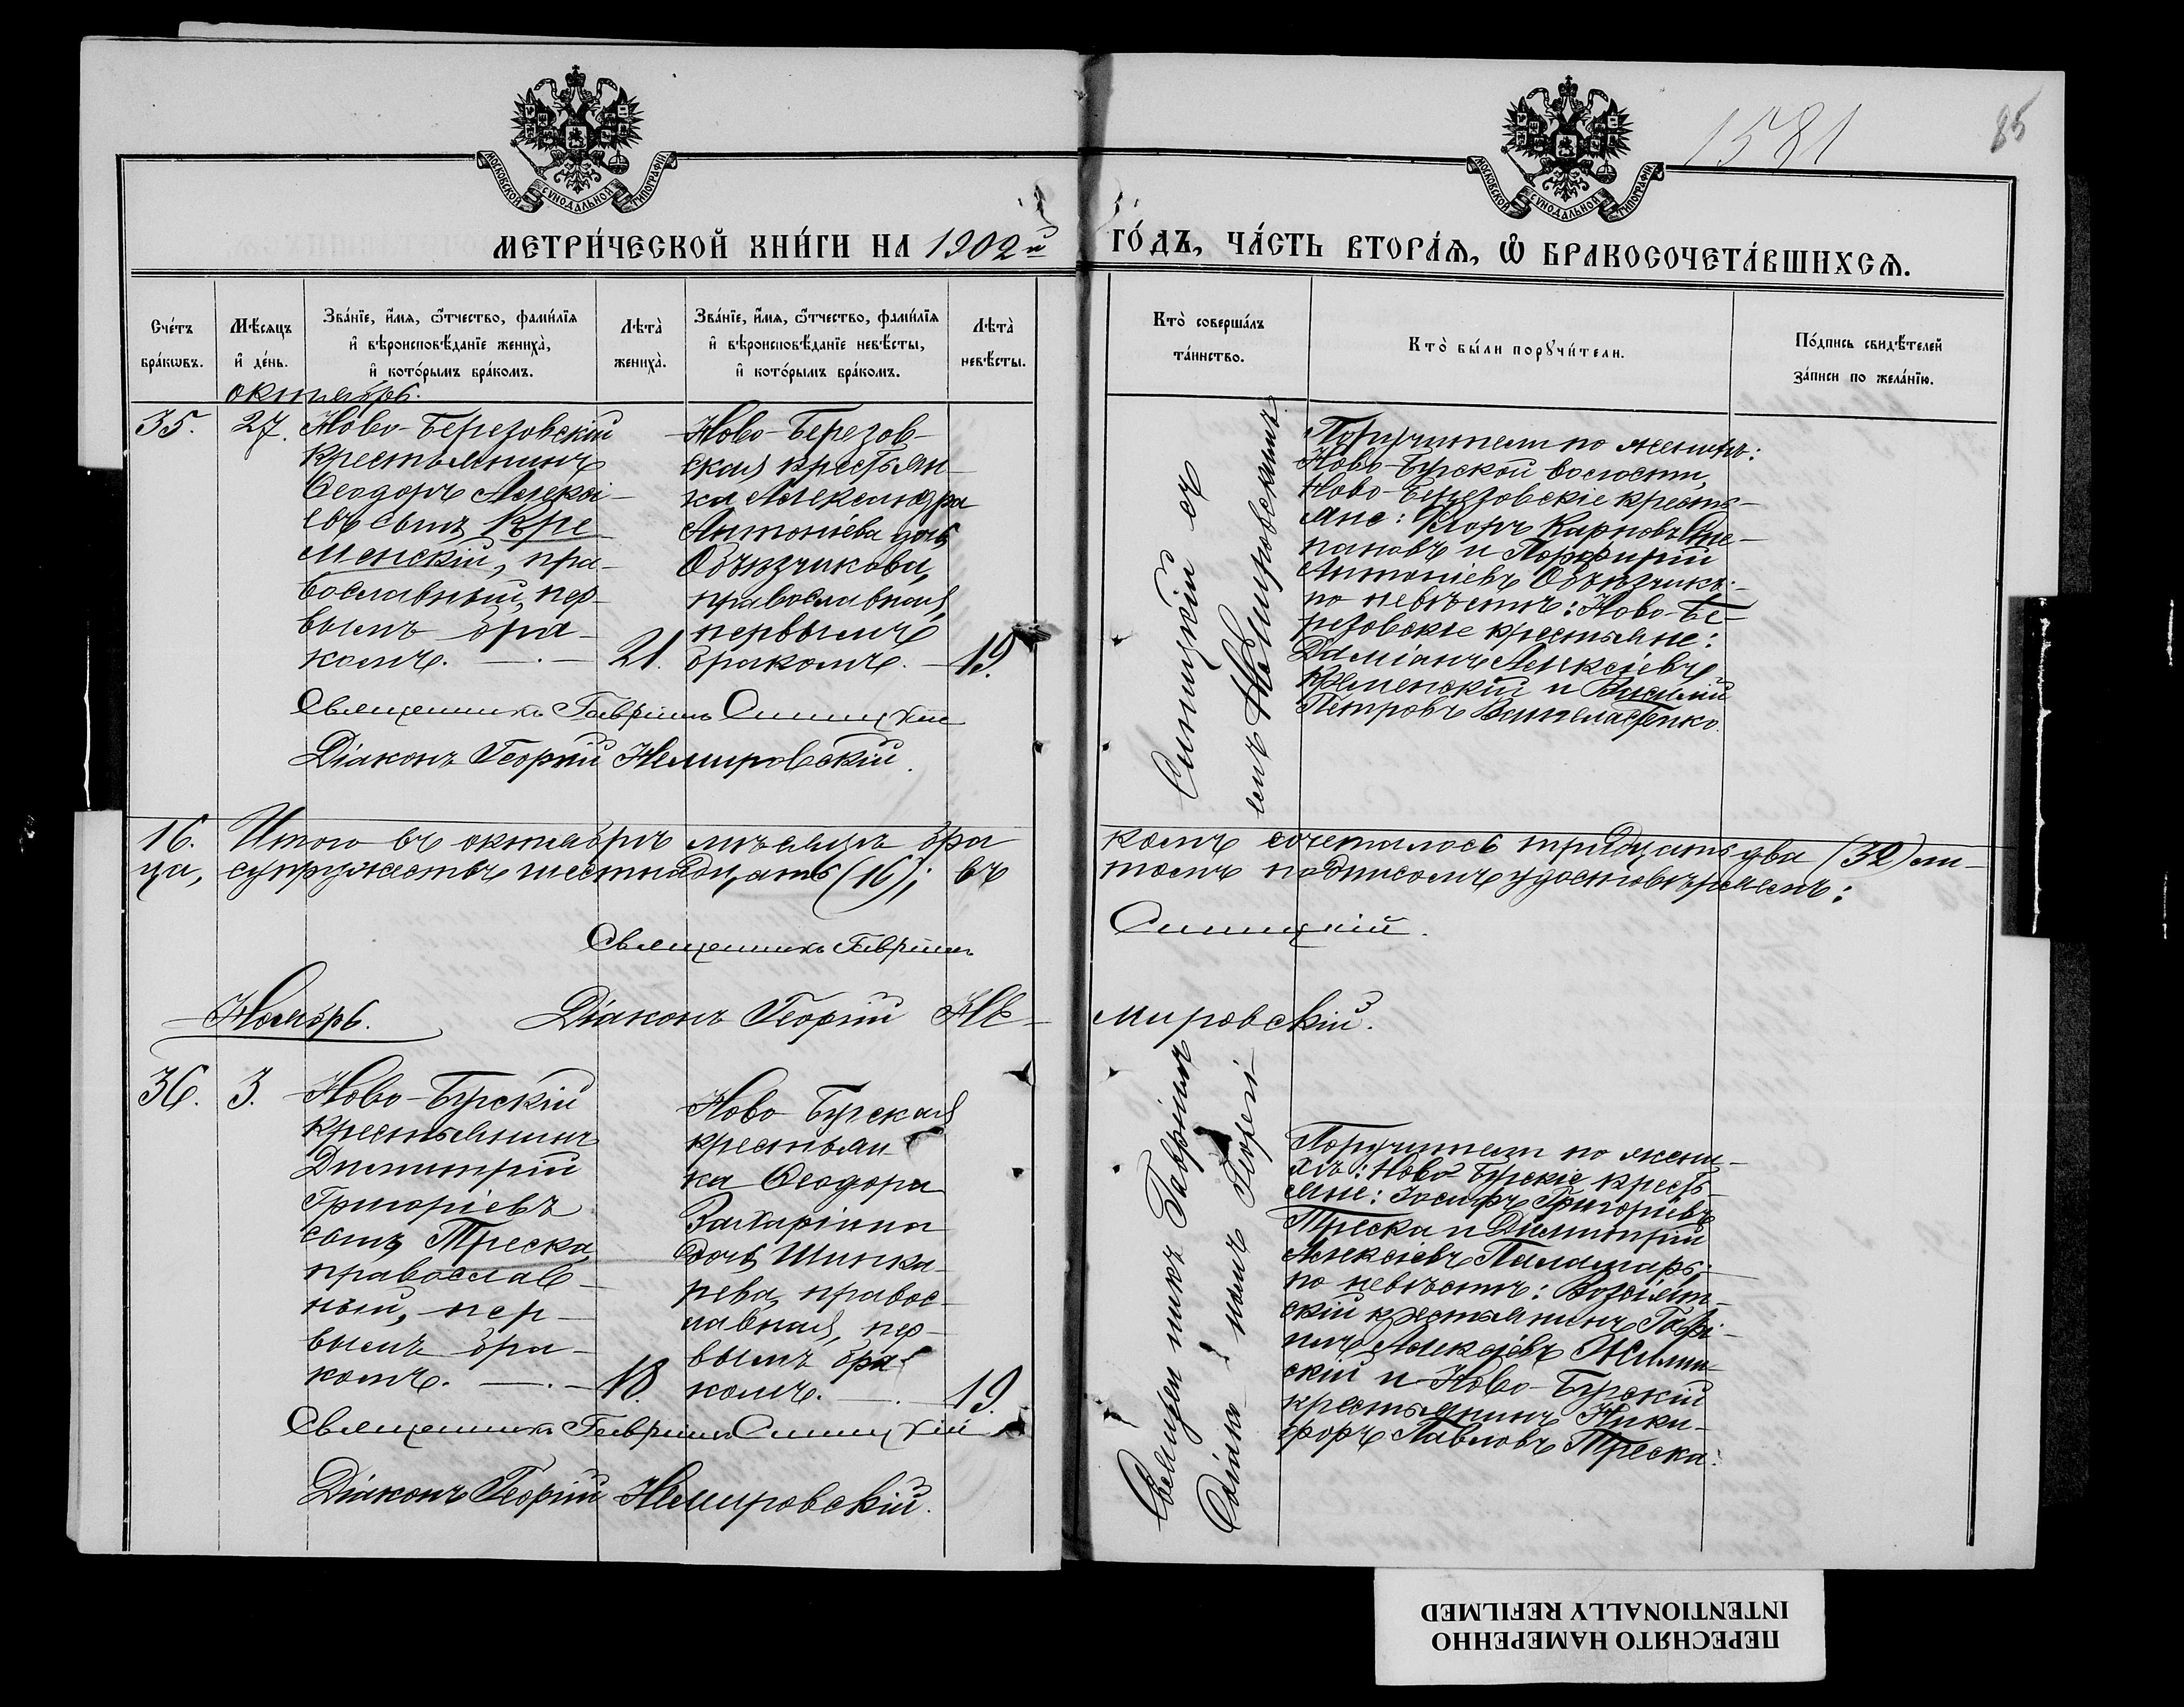 1581
85
МОСКОВСКОЙ СѴНОДАЛЬНОЙ ТИПОГРАФІИ
МОСКОВСКОЙ СѴНОДАЛЬНОЙ ТИПОГРАФІИ
МЕТРИ́ЧЕСКОЙ КНИ́ГИ НА 1902й ГО́ДЪ, ЧА́СТЬ ВТОРА́Ѧ, Ѽ БРАКОСОЧЕТА́ВШИХСѦ.
Сче́тъ
бра́кωвъ.
Мѣ́сяцъ
и҆ де́нь.
Зва́нїе, и҆́мя, ѻ҆́тчество, фами́лїя
и҆ вѣроисповѣ́данїе жениха̀,
и҆ кото́рымъ бра́комъ.
Лѣта̀
жениха̀.
Зва́нїе, и҆́мя, ѻ҆́тчество, фами́лїя
и҆ вѣроисповѣ́данїе невѣ́сты,
и҆ кото́рымъ бра́комъ.
Лѣта̀
невѣ́сты.
Кто̀ соверша́лъ
та́инство.
Кто̀ бы́ли порꙋчи́тели.
По́дпись свидѣ́телей
за́писи по жела́нїю.
октябрь.
35.
27.
Ново-Березовскій
крестьянинъ
Ѳеодоръ Алексі-
евъ сынъ Кре
менскій, пра-
вославный, пер-
вымъ бра-
комъ. —.— 21.
Ново-Березов-
ская крестьян-
ка Александра
Антоніева дочь
Объѣзчикова,
православная,
первымъ
бракомъ. — 19.
Синицкій съ
омъ Немировскимъ.
Поручители по женихѣ:
Ново-Бугской волости,
Ново-Березовскіе кресть-
яне: Карповъ Сте-
пановъ и Порфирій
Антоніевъ Объѣзчикъ;
по невѣстѣ: Ново-Бе-
резовскіе крестьяне:
Даміанъ Алексіевъ
Кременскій и Василій
Петровъ
Священникъ Гавріилъ Синицкій
Діаконъ Георгій Немировскій.
16. Итого въ октябрѣ мѣсяцѣ бра комъ сочеталось тридцать два (32) ли-
ца, супружествъ шестнадцать (16); въ томъ подписомъ удостовѣряемъ:
Священникъ Гавріилъ Синицкій.
Діаконъ Георгій Не- мировскій.
Ноябрь.
36.
3.
Ново-Бугскій
крестьянинъ
Димитрій
Григоріевъ
сынъ Треска,
православ-
ный, пер-
вымъ бра-
комъ. —.— 18.
Ново-Бугская
крестьян-
ка Ѳеодора
Захаріина
дочь Шинка-
рева, правос-
лавная, пер-
вымъ бра-
комъ. —.— 19.
Священникъ Гавріилъ
Діако- номъ Георгі-
Поручители по жени-
хѣ: Ново-Бугскіе кресть-
яне: Іосифъ Григоріевъ
Треска и Димитрій
Алексіевъ Паламарь;
по невѣстѣ: Возсіят-
скій крестьянинъ Гаврі-
илъ Алексіевъ Жилин-
скій и Ново-Бугскій
крестьянинъ Ники-
форъ Павловъ Треска.
Священникъ Гавріилъ Синицкій
Діаконъ Георгій Немировскій.
ПЕРЕСНЯТО НАМЕРЕННО
INTENTIONALLY REFILMED